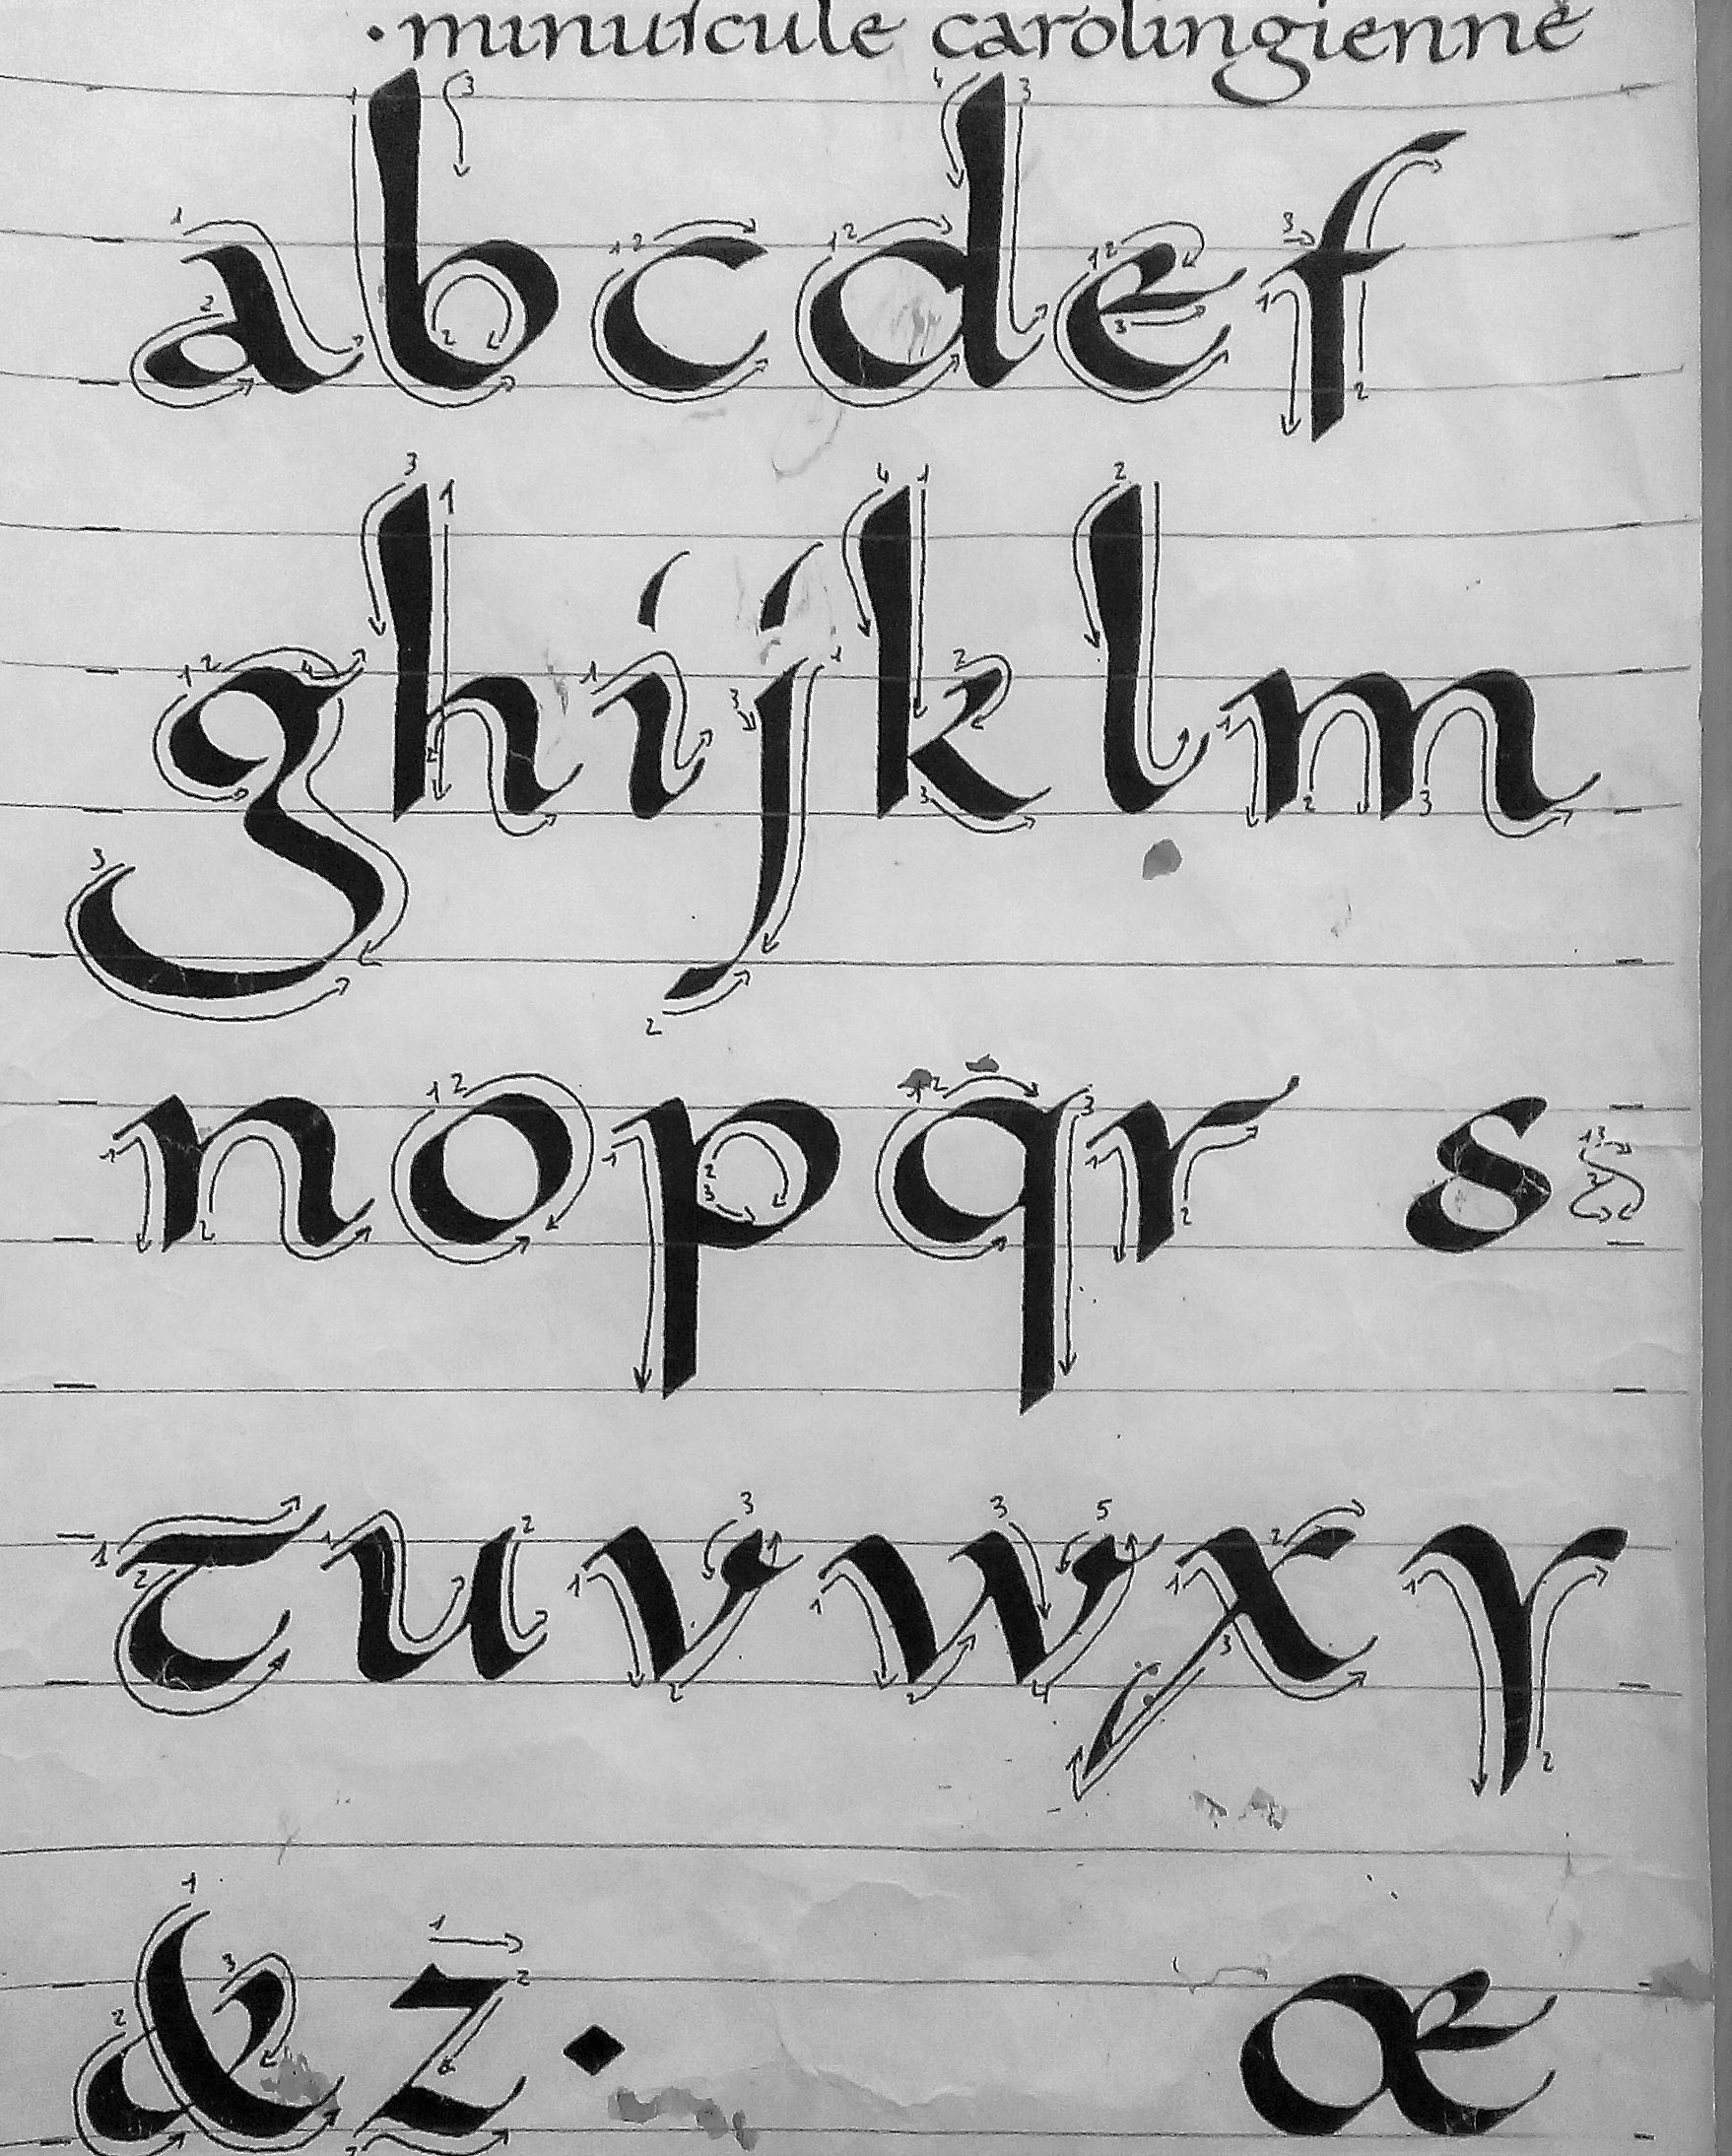 ·minuſcule carolingienne
a b c d e f
g h i j k l m
n o p q r s
t u v w x y
& z · æ